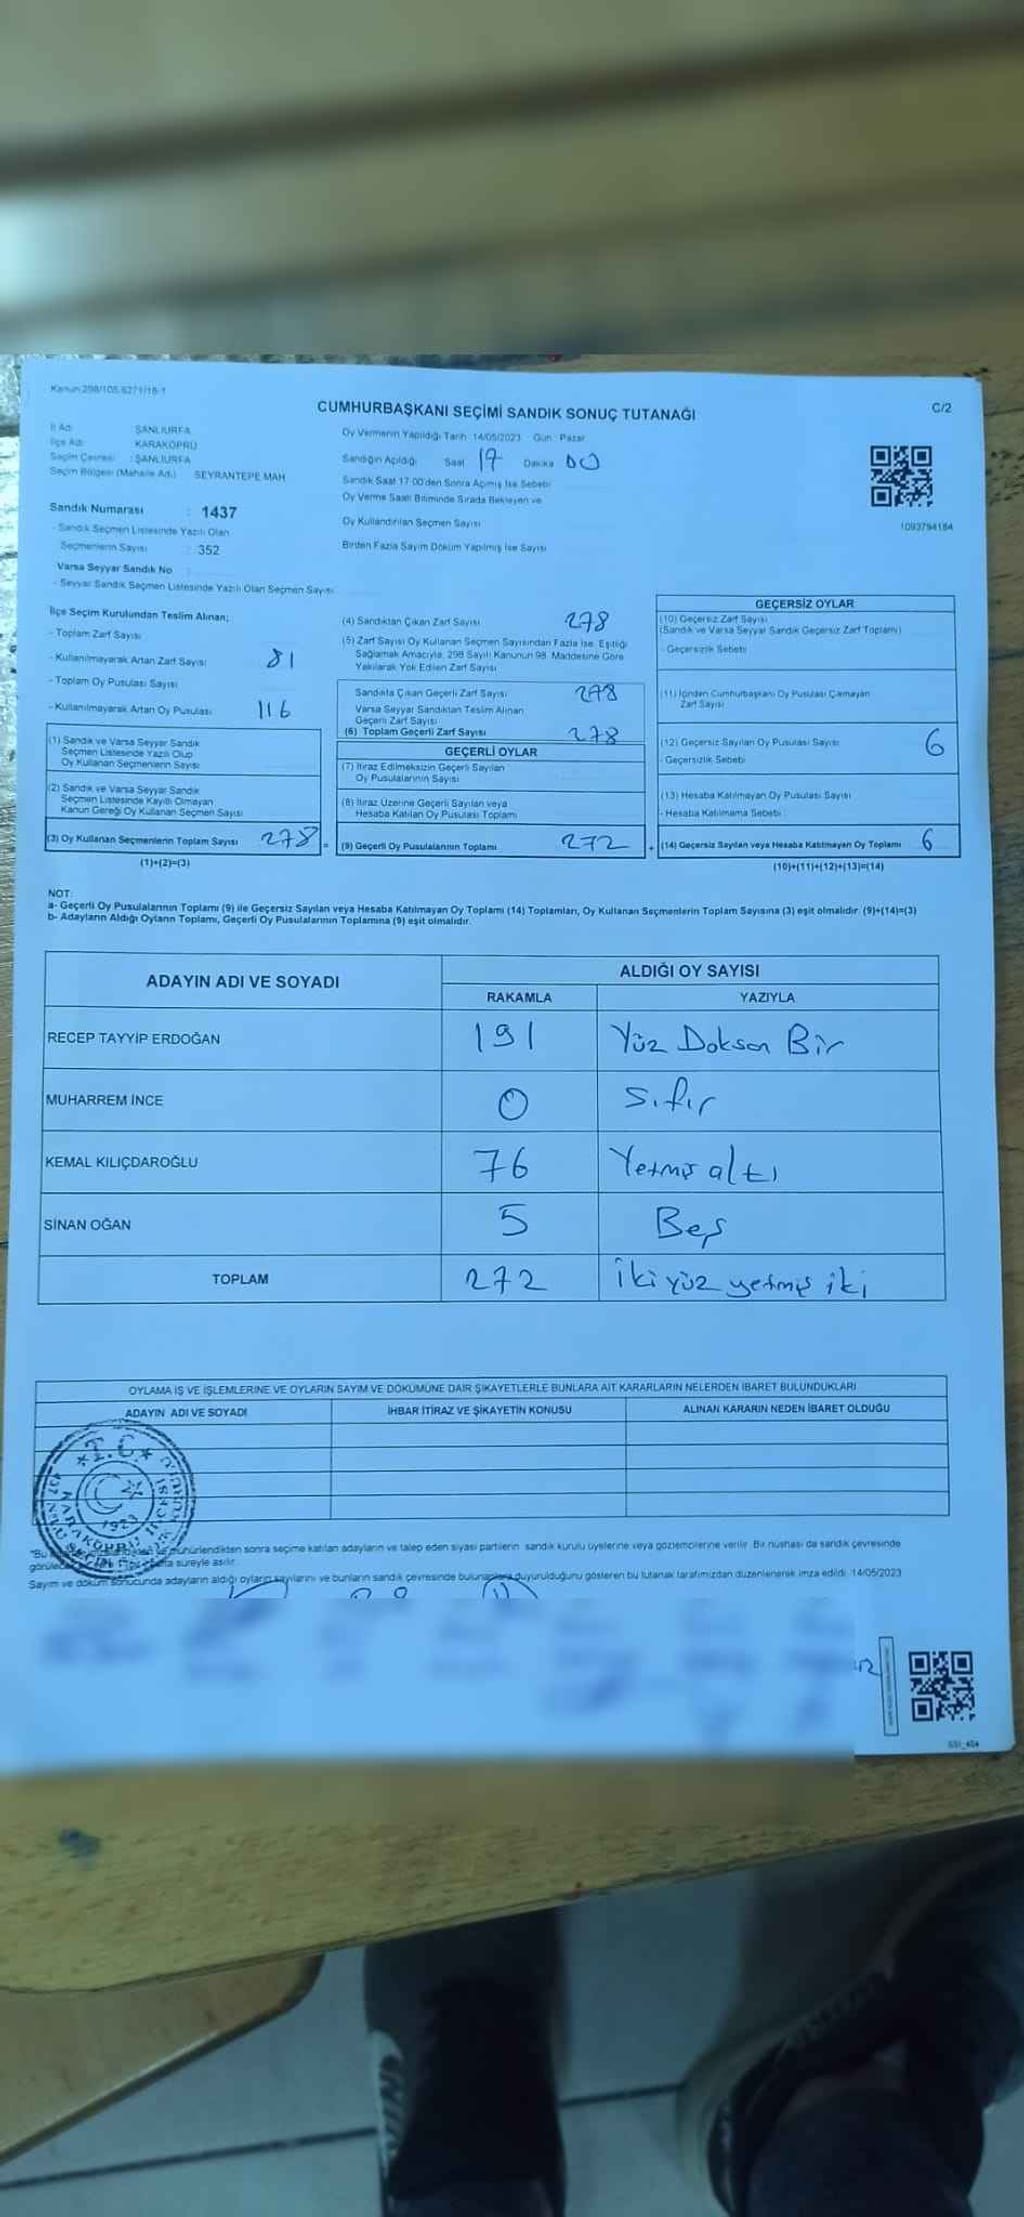 Kanun 298/105.6271/18-1
C/2
CUMHURBAŞKANI SEÇİMİ SANDIK SONUÇ TUTANAĞI
İl Adı : ŞANLIURFA
İlçe Adı : KARAKÖPRÜ
Seçim Çevresi : ŞANLIURFA
Seçim Bölgesi (Mahalle Adı) SEYRANTEPE MAH
Sandık Numarası : 1437
- Sandık Seçmen Listesinde Yazılı Olan
Seçmenlerin Sayısı : 352
Varsa Seyyar Sandık No
- Seyyar Sandık Seçmen Listesinde Yazılı Olan Seçmen Sayısı
Oy Vermenin Yapıldığı Tarih : 14/05/2023 Gün : Pazar
Sandığın Açıldığı Saat 17 Dakika 00
Sandık Saat 17.00'den Sonra Açmış İse Sebebi
Oy Verme Saati Bitiminde Sırada Bekleyen ve
Oy Kullandırılan Seçmen Sayısı
Birden Fazla Sayım Döküm Yapılmış İse Sayısı
1093794184
İlçe Seçim Kurulundan Teslim Alınan;
- Toplam Zarf Sayısı
- Kullanılmayarak Artan Zarf Sayısı 81
- Toplam Oy Pusulası Sayısı
- Kullanılmayarak Artan Oy Pusulası 116
(1) Sandık ve Varsa Seyyar Sandık
Seçmen Listesinde Yazılı Olup
Oy Kullanan Seçmenlerin Sayısı
(2) Sandık ve Varsa Seyyar Sandık
Seçmen Listesinde Kayıtlı Olmayan
Kanun Gereği Oy Kullanan Seçmen Sayısı
(3) Oy Kullanan Seçmenlerin Toplam Sayısı 278 =
(1)+(2)=(3)
(4) Sandıktan Çıkan Zarf Sayısı 278
(5) Zarf Sayısı Oy Kullanan Seçmen Sayısından Fazla İse, Eşitliği
Sağlamak Amacıyla, 298 Sayılı Kanunun 98. Maddesine Göre
Yakılarak Yok Edilen Zarf Sayısı
Sandıkta Çıkan Geçerli Zarf Sayısı 278
Varsa Seyyar Sandıktan Teslim Alınan
Geçerli Zarf Sayısı
(6) Toplam Geçerli Zarf Sayısı 278
GEÇERLİ OYLAR
(7) İtiraz Edilmeksizin Geçerli Sayılan
Oy Pusulalarının Sayısı
(8) İtiraz Üzerine Geçerli Sayılan veya
Hesaba Katılan Oy Pusulası Toplamı
(9) Geçerli Oy Pusulalarının Toplamı 272 +
GEÇERSİZ OYLAR
(10) Geçersiz Zarf Sayısı
(Sandık ve Varsa Seyyar Sandık Geçersiz Zarf Toplamı)
- Geçersizlik Sebebi
(11) İçinden Cumhurbaşkanı Oy Pusulası Çıkmayan
Zarf Sayısı
(12) Geçersiz Sayılan Oy Pusulası Sayısı 6
- Geçersizlik Sebebi
(13) Hesaba Katılmayan Oy Pusulası Sayısı
- Hesaba Katılmama Sebebi
(14) Geçersiz Sayılan veya Hesaba Katılmayan Oy Toplamı 6
(10)+(11)+(12)+(13)=(14)
NOT:
a- Geçerli Oy Pusulalarının Toplamı (9) ile Geçersiz Sayılan veya Hesaba Katılmayan Oy Toplamı (14) Toplamları, Oy Kullanan Seçmenlerin Toplam Sayısına (3) eşit olmalıdır. (9)+(14)=(3)
b- Adayların Aldığı Oyların Toplamı, Geçerli Oy Pusulalarının Toplamına (9) eşit olmalıdır.
ADAYIN ADI VE SOYADI
ALDIĞI OY SAYISI
RAKAMLA YAZIYLA
RECEP TAYYİP ERDOĞAN 191 Yüz Doksan Bir
MUHARREM İNCE 0 Sıfır
KEMAL KILIÇDAROĞLU 76 Yetmiş altı
SİNAN OĞAN 5 Beş
TOPLAM 272 İki yüz yetmiş iki
OYLAMA İŞ VE İŞLEMLERİNE VE OYLARIN SAYIM VE DÖKÜMÜNE DAİR ŞİKAYETLERLE BUNLARA AİT KARARLARIN NELERDEN İBARET BULUNDUKLARI
ADAYIN ADI VE SOYADI İHBAR İTİRAZ VE ŞİKAYETİN KONUSU ALINAN KARARIN NEDEN İBARET OLDUĞU
T.C.
1923
KARAKÖPRÜ
sonra seçime katılan adayların ve talep eden siyasi partilerin sandık kurulu üyelerine veya gözlemcilerine verilir. Bir nüshası da sandık çevresinde
süreyle asılır.
Sayım ve döküm sonucunda adayların aldığı oyların sayılarını ve bunların sandık çevresinde duyurulduğunu gösteren bu tutanak tarafımızdan düzenlenerek imza edildi. 14/05/2023